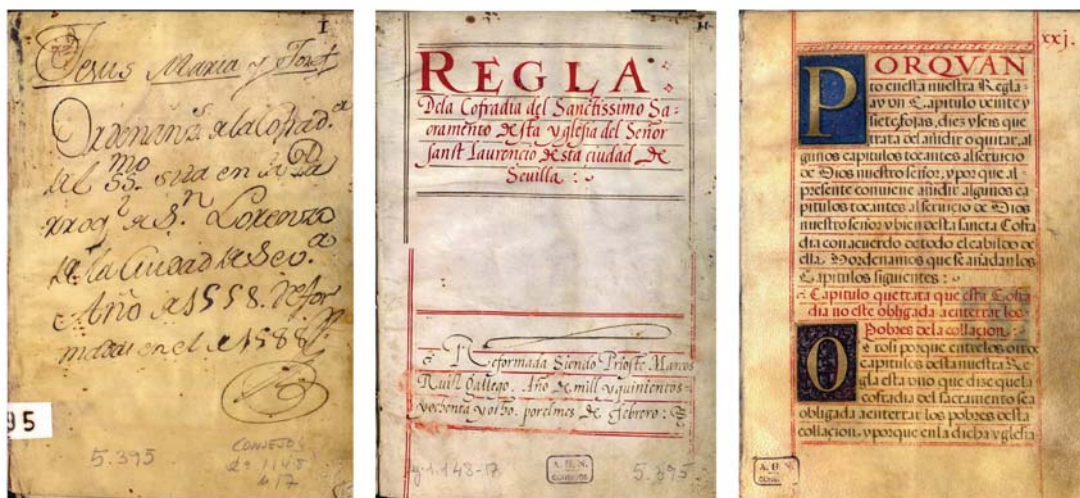 I
Jesus Maria y Josef
Ordenanzs. de la Cofrad.ª
del SS.mo sita en la Pa
rroq.ª de S.n Lorenzo
de la Ciudad de Sev.ª
Año de 1558. Refor
mada en el de 1588
95
5.395
CONSEJOS
417
II
REGLA
Dela Cofradia del Sanctissimo Sa-
cramento desta yglesia del Señor
sanct Laurencio desta ciudad de
Sevilla :
Reformada Siendo Prioste Marcos
Ruiz Gallego. Año de mill y quinientos
yochenta yocho. porelmes de febrero :
A. H. N.
CONSEJOS
5.395
xxj.
PORQVAN
to enesta nuestra Regla
ay vn Capitulo veinte y
siete, fojas, diez y seis que
trata del añidir o quitar, al
gunos capitulos tocantes al seruicio
de Dios nuestro señor, y por que al
presente conuiene añidir algunos ca
pitulos tocantes al seruicio de Dios
nuestro señor y bien desta sancta Cofra
dia con acuerdo de todo el cabildo de
ella. Ordenamos que se añadan los
Capitulos siguientes :
Capitulo que trata que esta Cofra
dia no este obligada a enterrar los
Pobres de la collacion :
O troli porque entre los otros
capitulos desta nuestra Re
gla esta vno que dise que la
cofradia del sacramento sea
obligada a enterrar los pobres desta
collacion, y porque en la dicha yglesia
A. H. N.